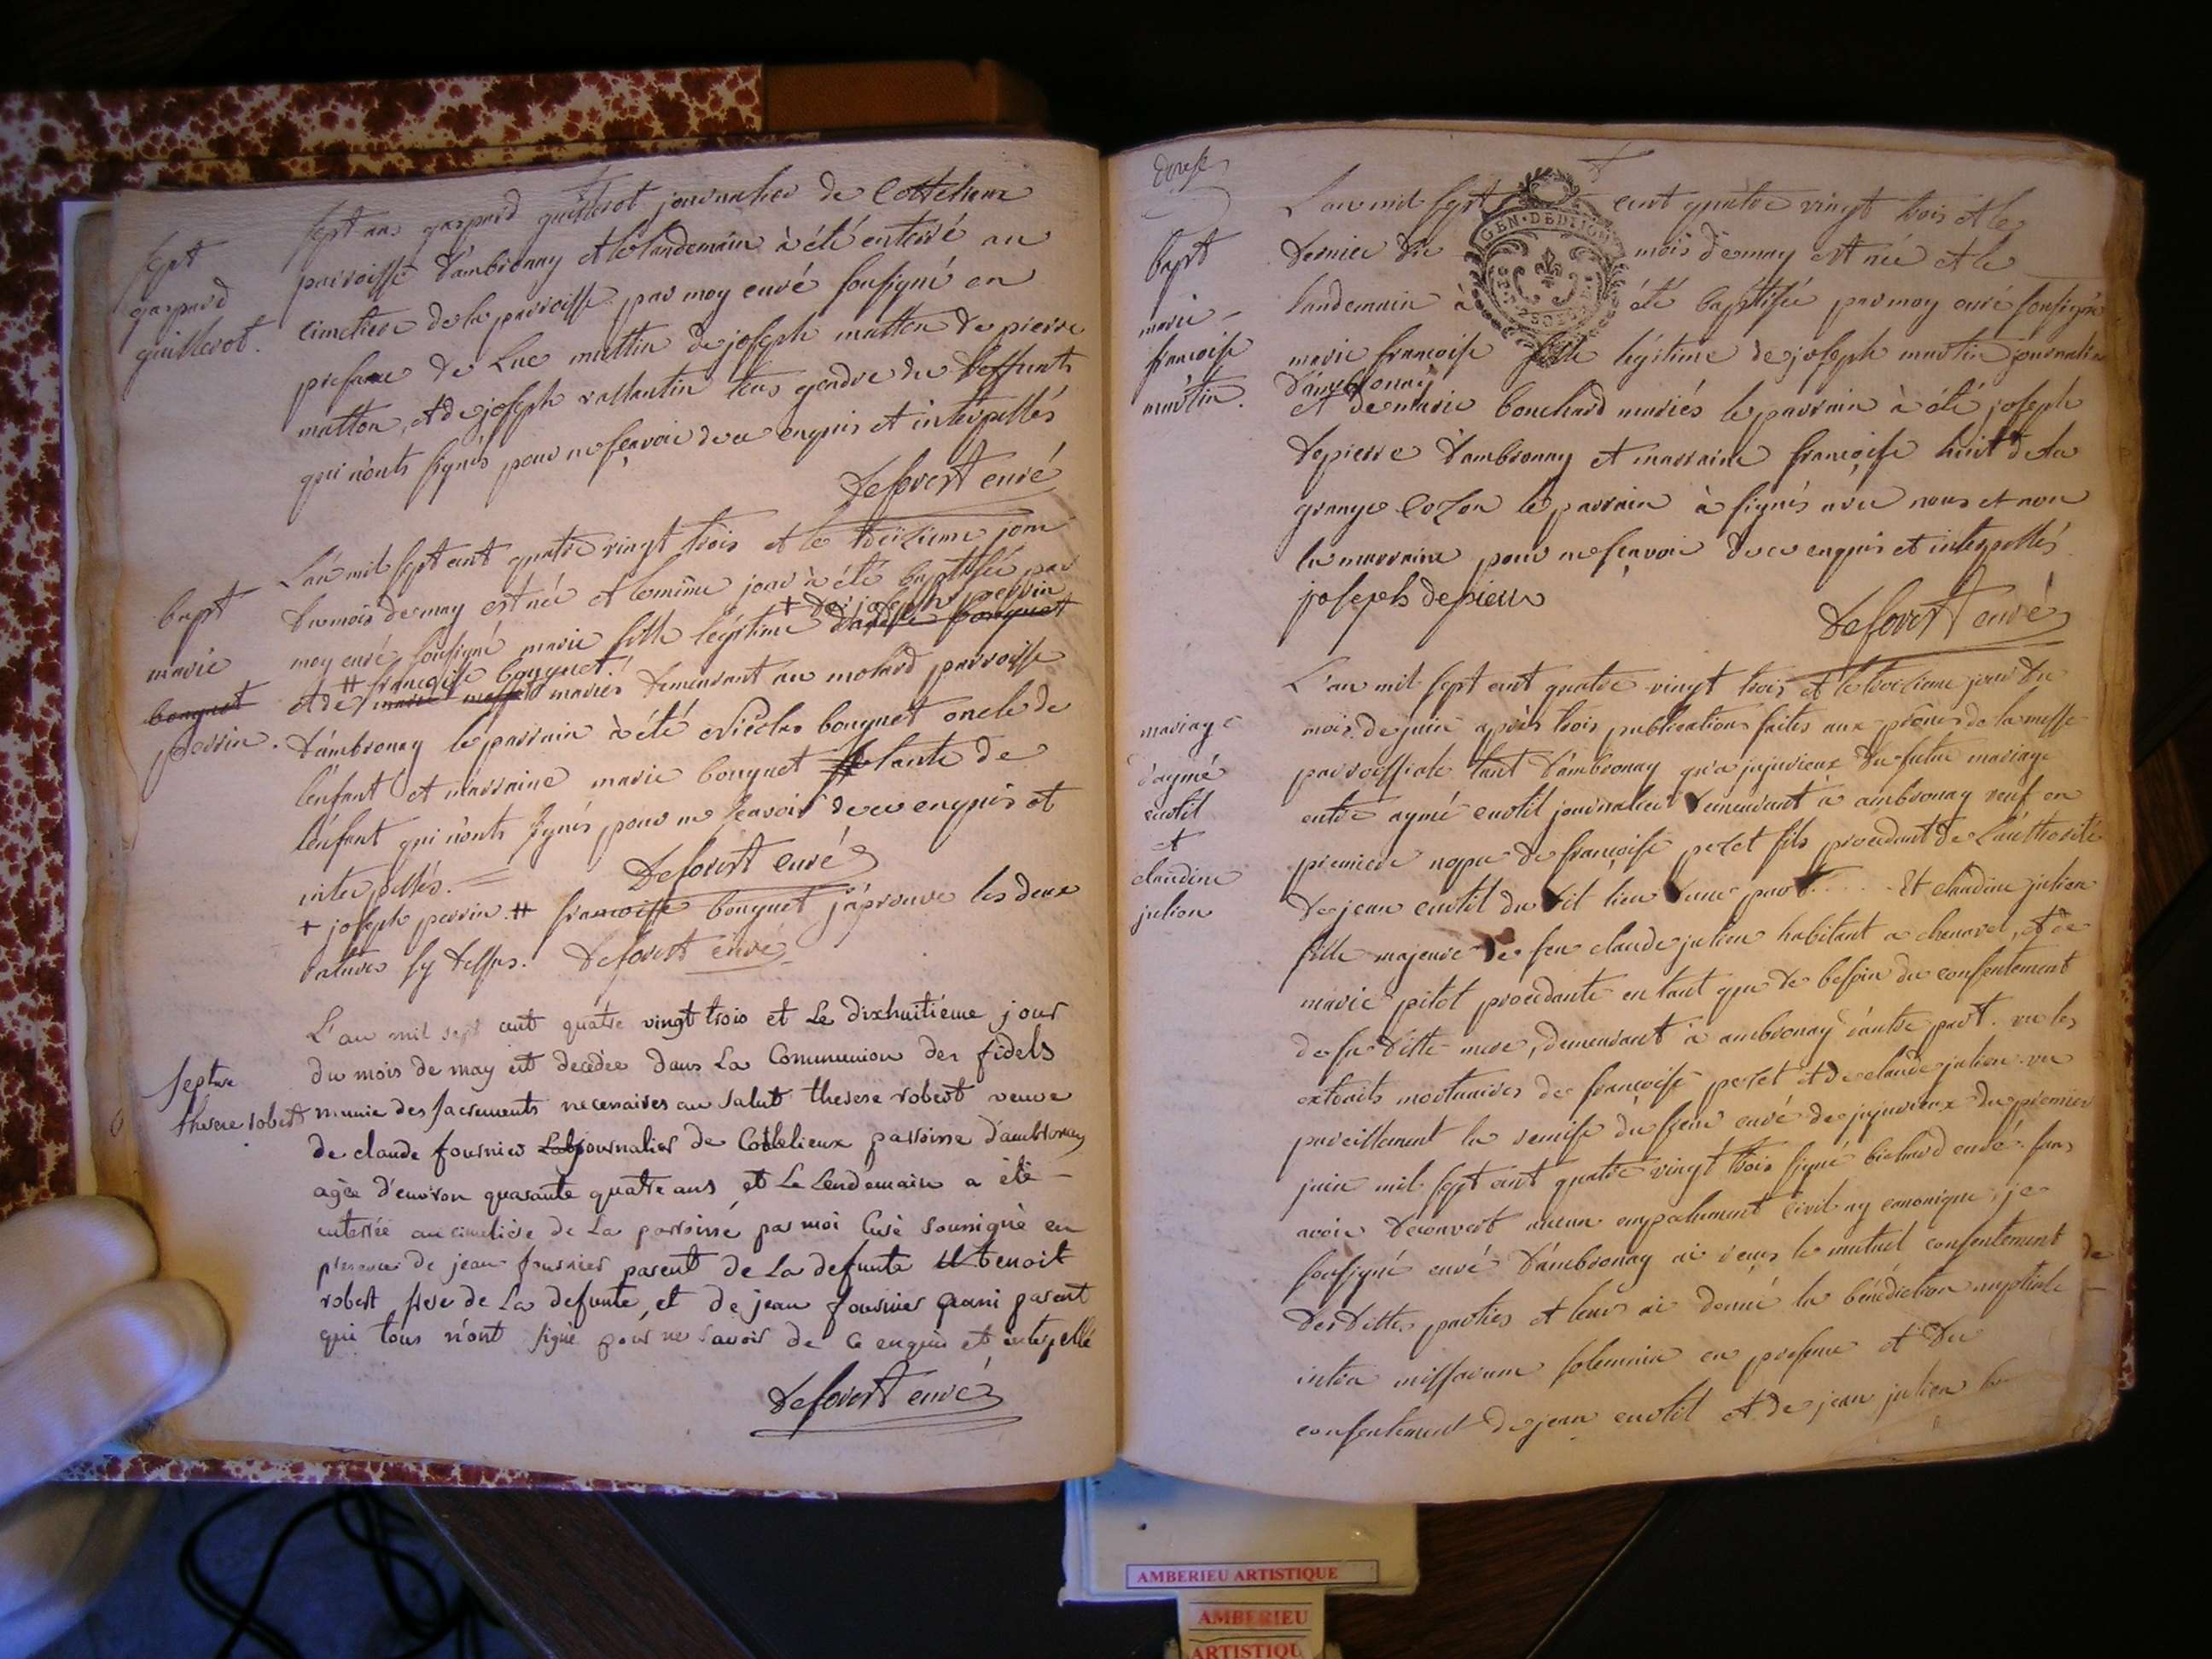 sept
gaspard
guillerot.
sept ans gaspard guillerot journalier de Cottelieux
parroisse d'ambronay et le landemain à été enterré au
cimetiere de la parroisse par moy curé soussigné en
presence de Luc muttin de joseph mutton de pierre
mutton, et de joseph vallantin tous gendre du deffunts
qui n'onts signés pour ne sçavoir de ce enquis et interpellés
Deforest curé
bapt
marie
bouquet
perrin.
L'an mil sept cent quatre vingt trois et le treizieme jour
du mois de may est née et le même jour à été baptisée par
+ de joseph perrin
moy curé soussigné marie fille légitime d'andre bouquet
# françoise bouquet!
et de mariés demeurant au molard parroisse
d'ambronay le parrain à été Nicolas bouquet oncle de
l'enfant et marraine marie bouquet tante de
l'enfant qui n'onts signés pour ne sçavoir de ce enquis et
interpellés. Deforest curé
+ joseph perrin # francoisse bouquet j'aprouve les deux
ratures sy dessus. Deforest curé
septure
therese robert
L'an mil sept cent quatre vingt trois et Le dixhuitième jour
du mois de may est decedée dans La Communion des fidels
munie des sacrements necessaires au salut therese robert veuve
de claude fournier Lab journalier de Cottelieux paroisse d'ambronay
agée d'environ quarante quatre ans et Le Lendemain a été
enterrée au cimetière de La paroisse par moi Curé soussigné en
presence de jean fournier parent de La defunte benoit
robert frere de La defunte, et de jean fournier parent
qui tous n'ont signé pour ne savoir de ce enquis et interpellé
Deforest curé
GEN · DEDIJON
bapt
marie
françoise
martin.
L'an mil sept cent quatre vingt trois et le
dernier du mois de may est née et le
landemain à été baptisée par moy curé soussigné
marie françoise fille légitime de joseph martin journalier
d'ambronay
et de marie bouchard mariés le parrain à été joseph
depierre d'ambronay et marraine françoise huit de la
grange Cozon le parrain à signés avec nous et non
la marraine pour ne sçavoir de ce enquis et interpellés
joseph depierre
Deforest curé
mariage
d'aymé
curtil
et
claudine
julien
L'an mil sept cent quatre vingt trois et le treizieme jour du
mois de juin après trois publications faites aux prônes de la messe
parroissiale tant d'ambronay qu'a jujurieux du futur mariage
entre aymé curtil journalier demeurant à ambronay veuf en
premiere nopce de françoise perret fils procedant de l'authorité
de jean curtil du dit lieu d'une part. Et claudine julien
fille majeure de feu claude julien habitant a chenavel, et de
marie pitot procedante en tant que de besoin du consentement
de sa ditte mere, demeurant à ambronay d'autre part. vu les
extraits mortuaires de françoise perret et de claude julien. vu
pareillement la remise du sieur curé de jujurieux du premier
juin mil sept cent quatre vingt trois signé bichard curé. sans
avoir decouvert aucun empechement civil ny canonique, je
soussigné curé d'ambronay ai reçus le mutuel consentement de
des dittes parties et leurs ai donné la bénédiction nuptiale
intra missarum solemnia en presence et du
consentement de jean curtil et de jean julien
AMBERIEU ARTISTIQUE
AMBERIEU
ARTISTIQU